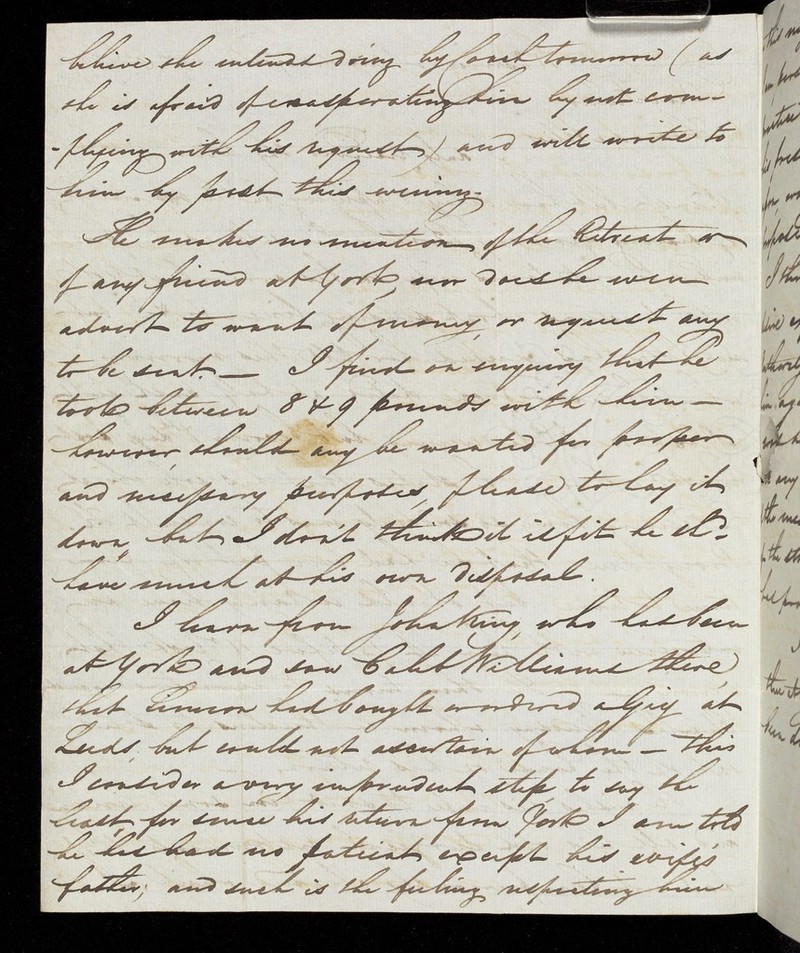 believe she intends doing by Coach tomorrow (as
she is afraid of exasperating him by not com-
-plying with his request) and will write to
him by post this evening.
He makes no mention of the Retreat or
of any friend at York, nor does he even
advert to want of money, or request any
to be sent. — I find on enquiry that he
took between 8 & 9 pounds with him —
however, should any be wanted for proper
and necessary purposes, please to lay it
down, but I don't think it is fit he shd.
have much at his own disposal.
I learn from John King, who has been
at York and saw Caleb Williams there,
that Simeon had bought or ordered a Gig at
Leeds, but could not ascertain of whom — this
I consider a very imprudent step, to say the
least, for since his return from York I am told
he has had no patient except his wife's
father; and such is the feeling respecting him